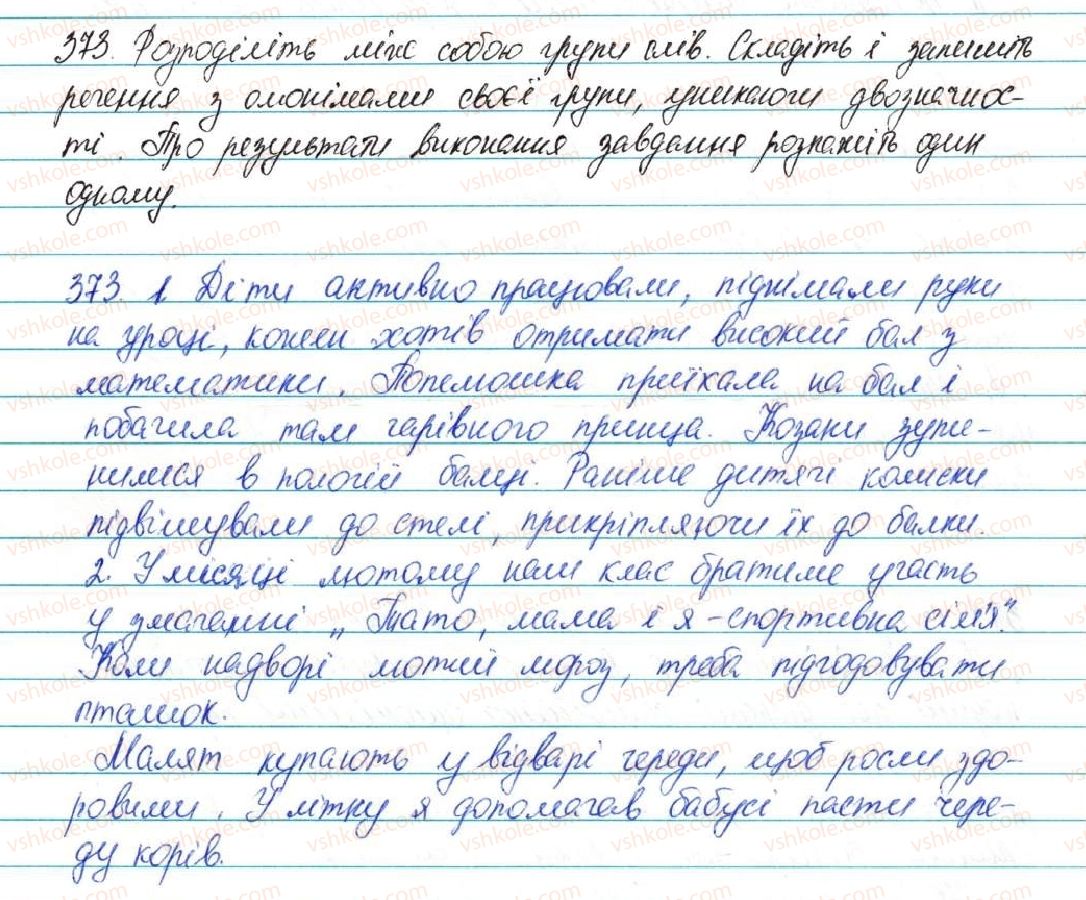 373. Розподіліть між собою групи слів. Складіть і запишіть
речення з омонімами своєї групи, уникаючи двозначнос-
ті. Про результати виконання завдання розкажіть один
одному.
373 1. Діти активно працювали, піднімали руки
на уроці, кожен хотів отримати високий бал з
математики. Попелюшка приїхала на бал і
побачила там чарівного принца. Козаки зупи-
нилися в пологій балці. Раніше дитячі колиски
підвішували до стелі, прикріпляючи їх до балки.
2. У місяці лютому наш клас братиме участь
у змаганні „Тато, мама і я – спортивна сім'я".
Коли надворі лютий мороз, треба підгодовувати
пташок.
Малят купають у відварі череди, щоб росли здо-
ровими. Улітку я допомагав бабусі пасти чере-
ду корів.